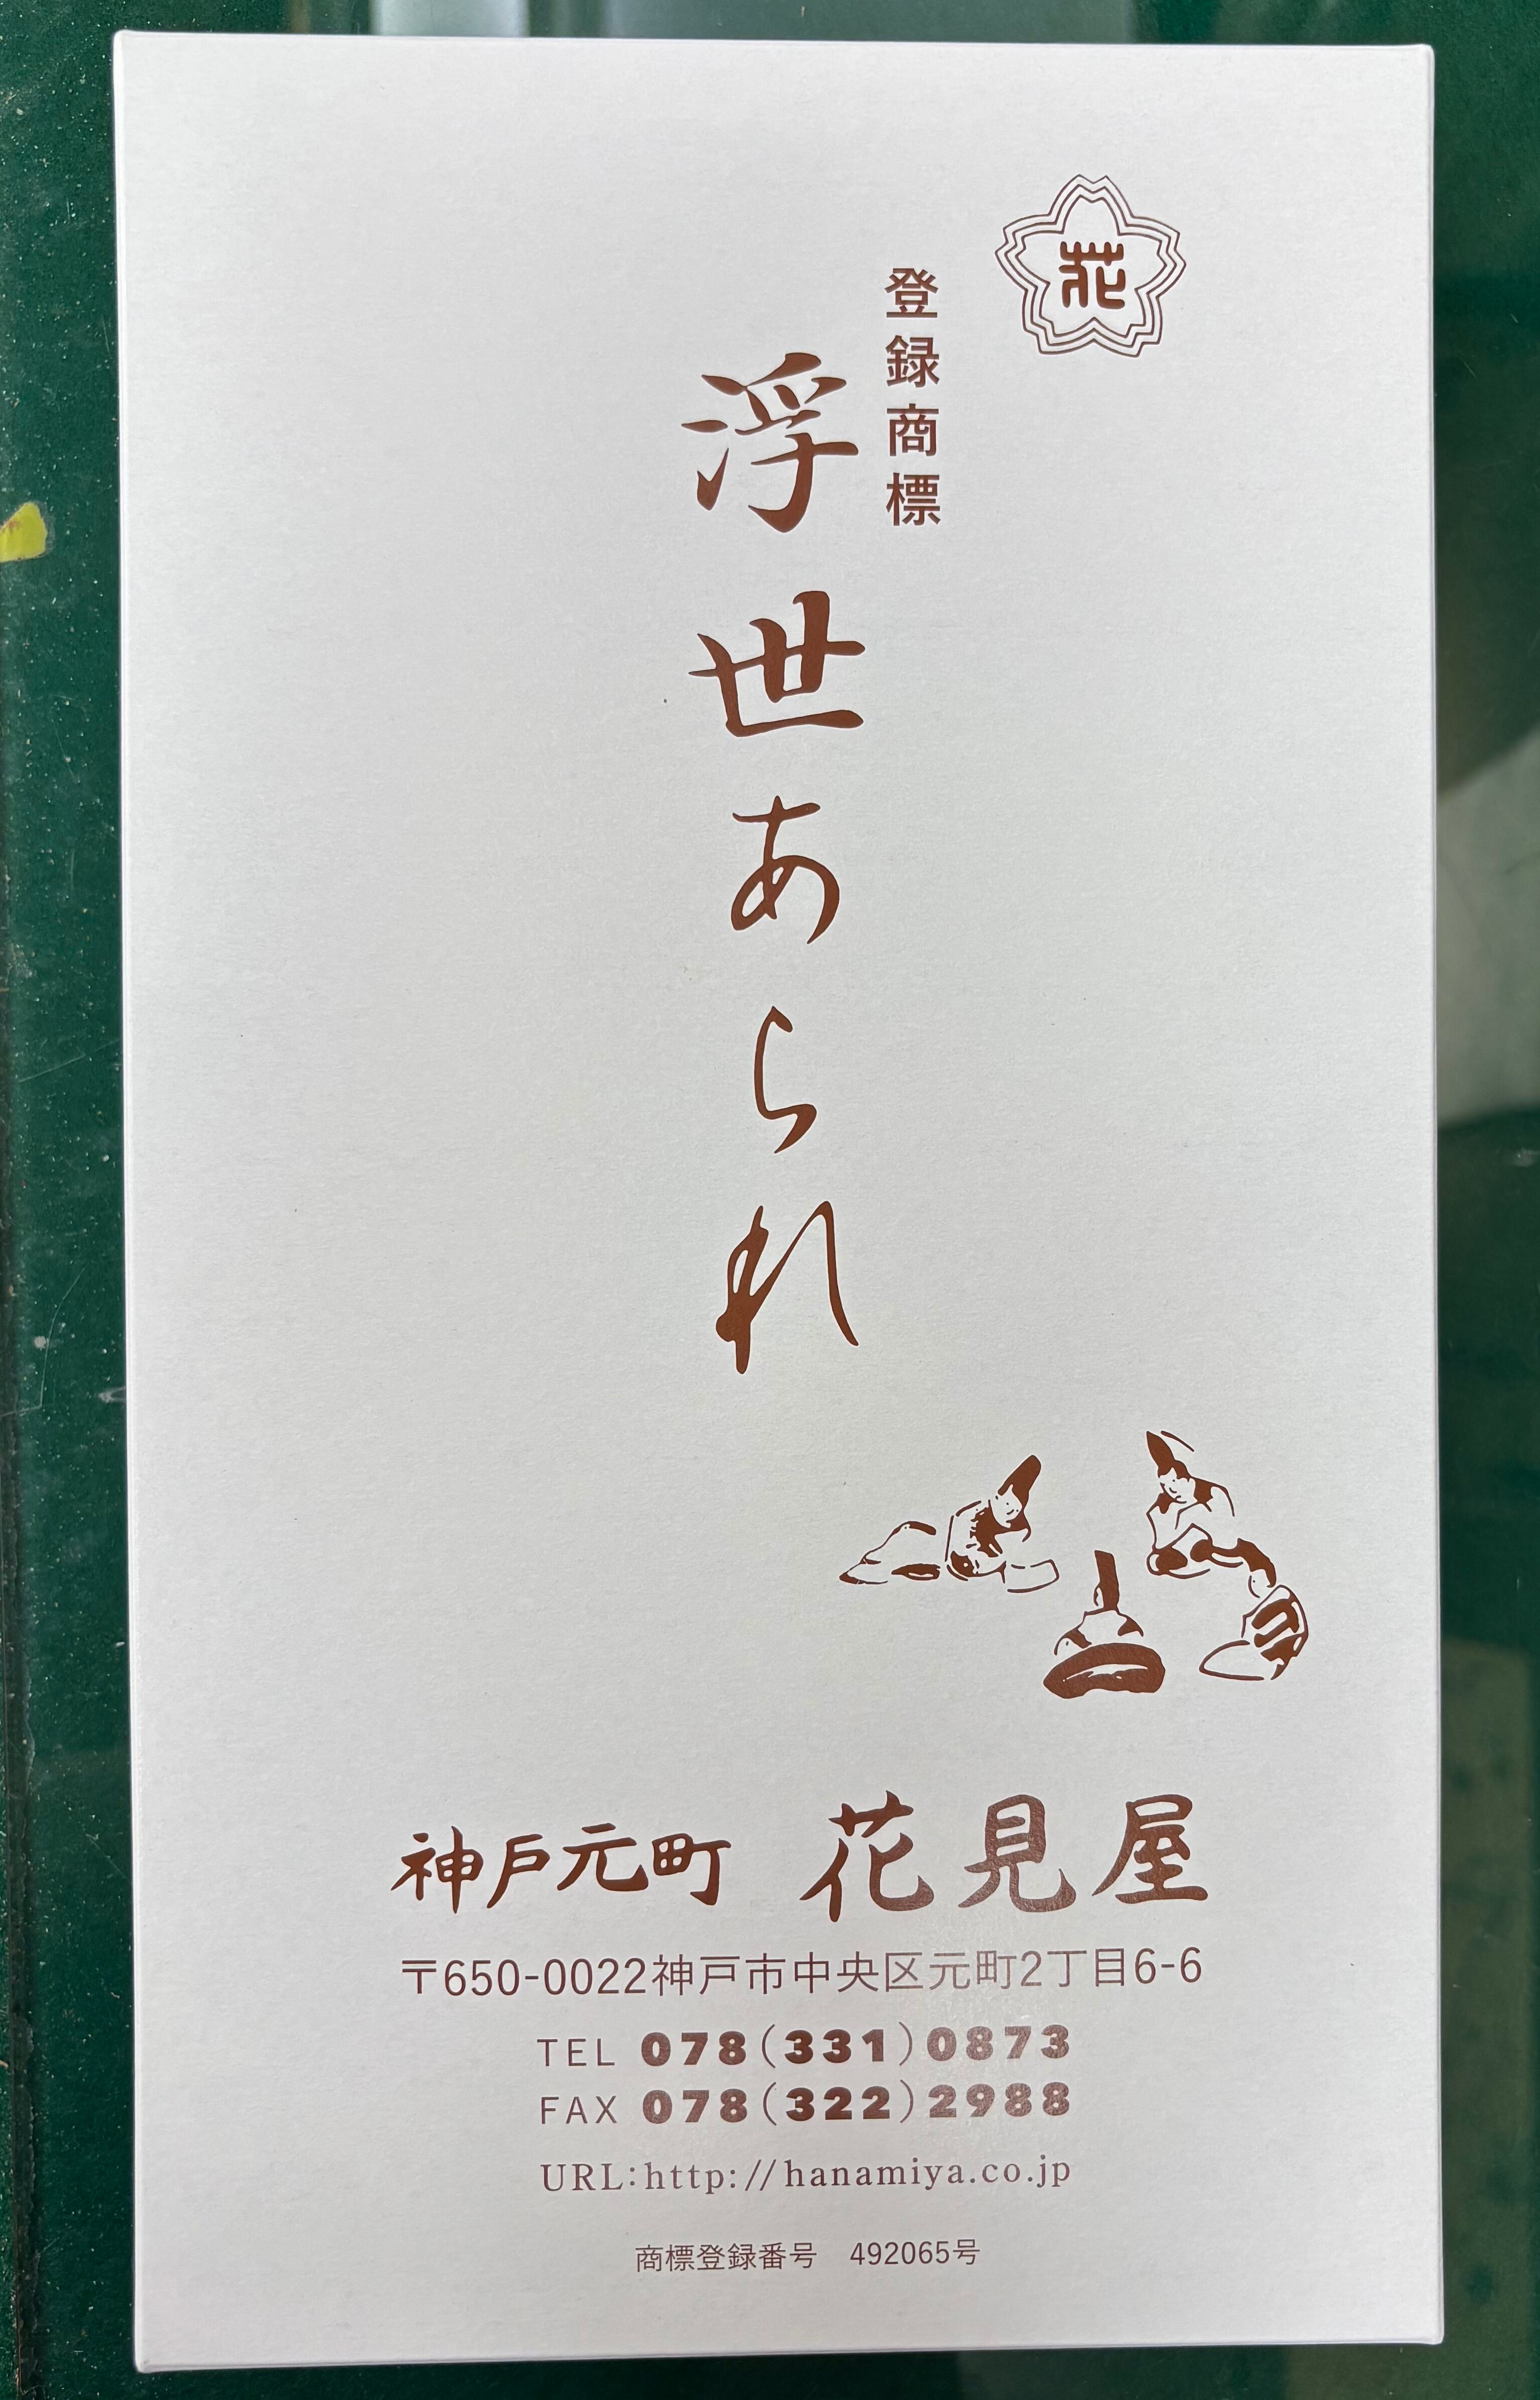 花
登録商標
浮世あられ
神戸元町 花見屋
〒650-0022神戸市中央区元町2丁目6-6
TEL 078(331)0873
FAX 078(322)2988
URL:http://hanamiya.co.jp
商標登録番号 492065号